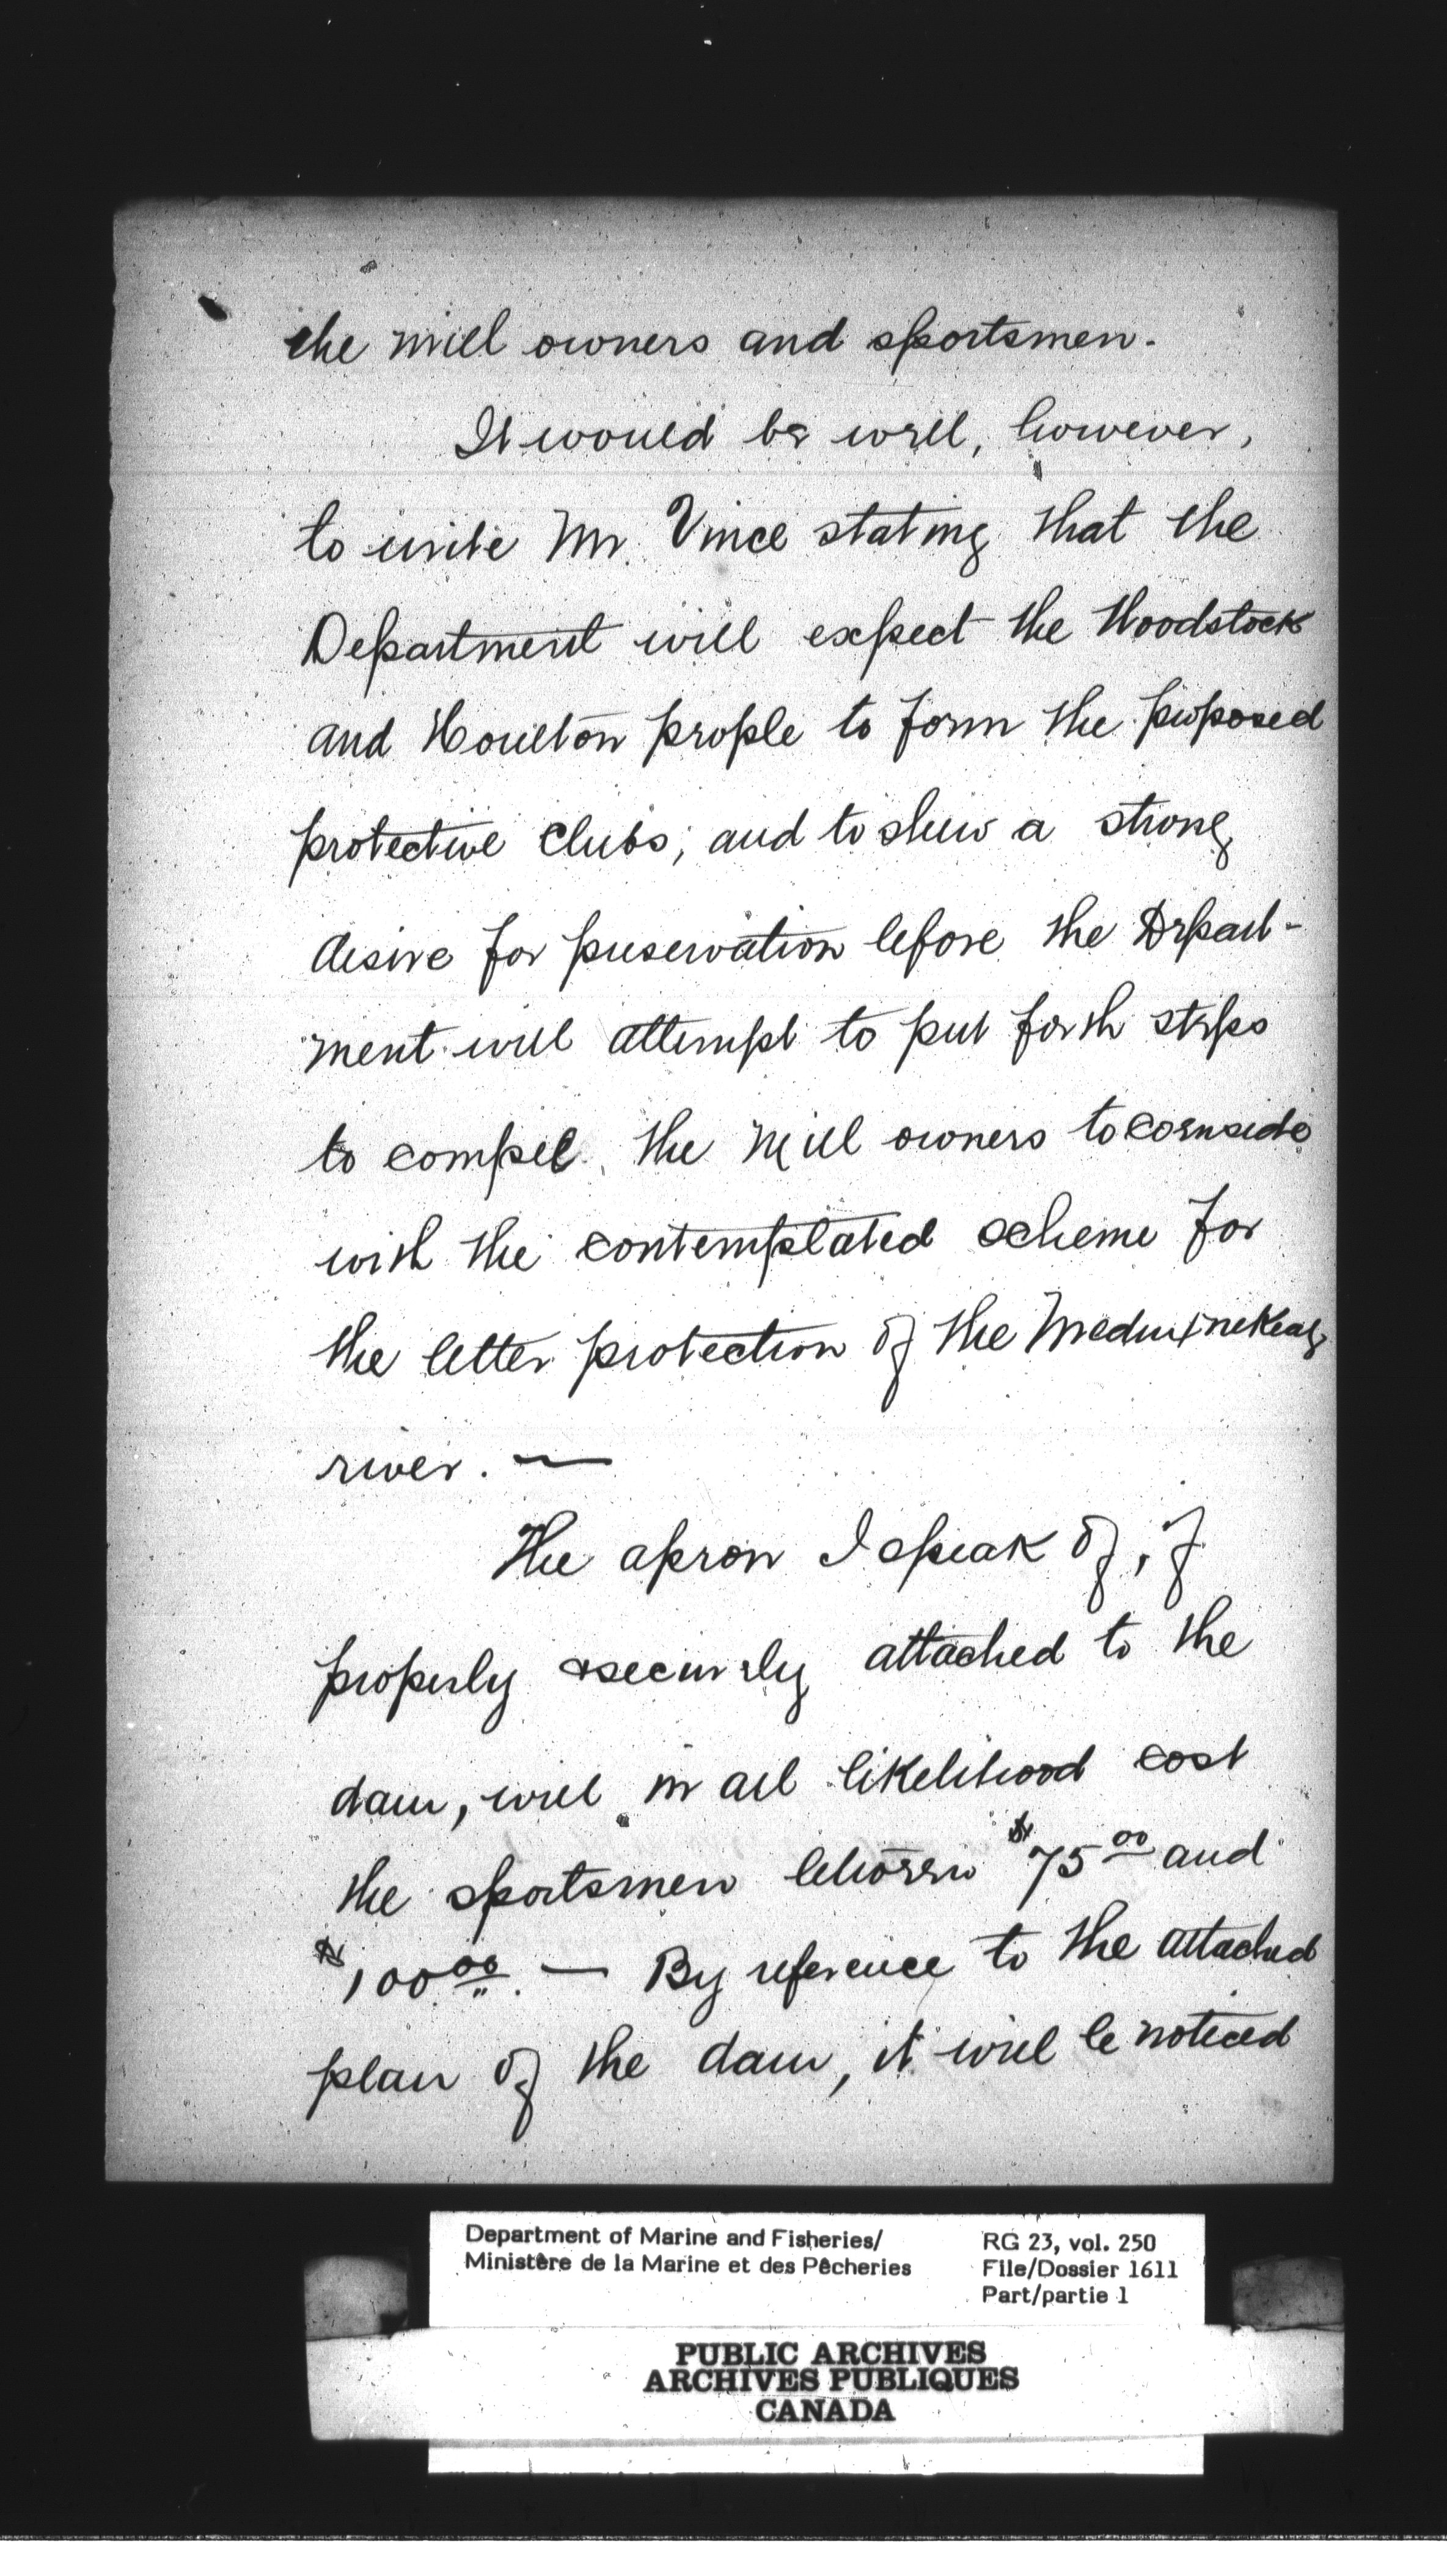 the mill owners and sportsmen.
It would be well, however,
to write Mr. Vince stating that the
Department will expect the Woodstock
and Houlton people to form the proposed
protective clubs; and to shew a strong
desire for preservation before the Depart-
ment will attempt to put forth steps
to compel the Mill owners to coincide
with the contemplated scheme for
the better protection of the Meduxnekeag
river. —
The apron I speak of, if
properly & securely attached to the
dam, will in all likelihood cost
the sportsmen between $75.00 and
$100.00. — By reference to the attached
plan of the dam, it will be noticed
Department of Marine and Fisheries/
Ministère de la Marine et des Pêcheries
RG 23, vol. 250
File/Dossier 1611
Part/partie 1
PUBLIC ARCHIVES
ARCHIVES PUBLIQUES
CANADA